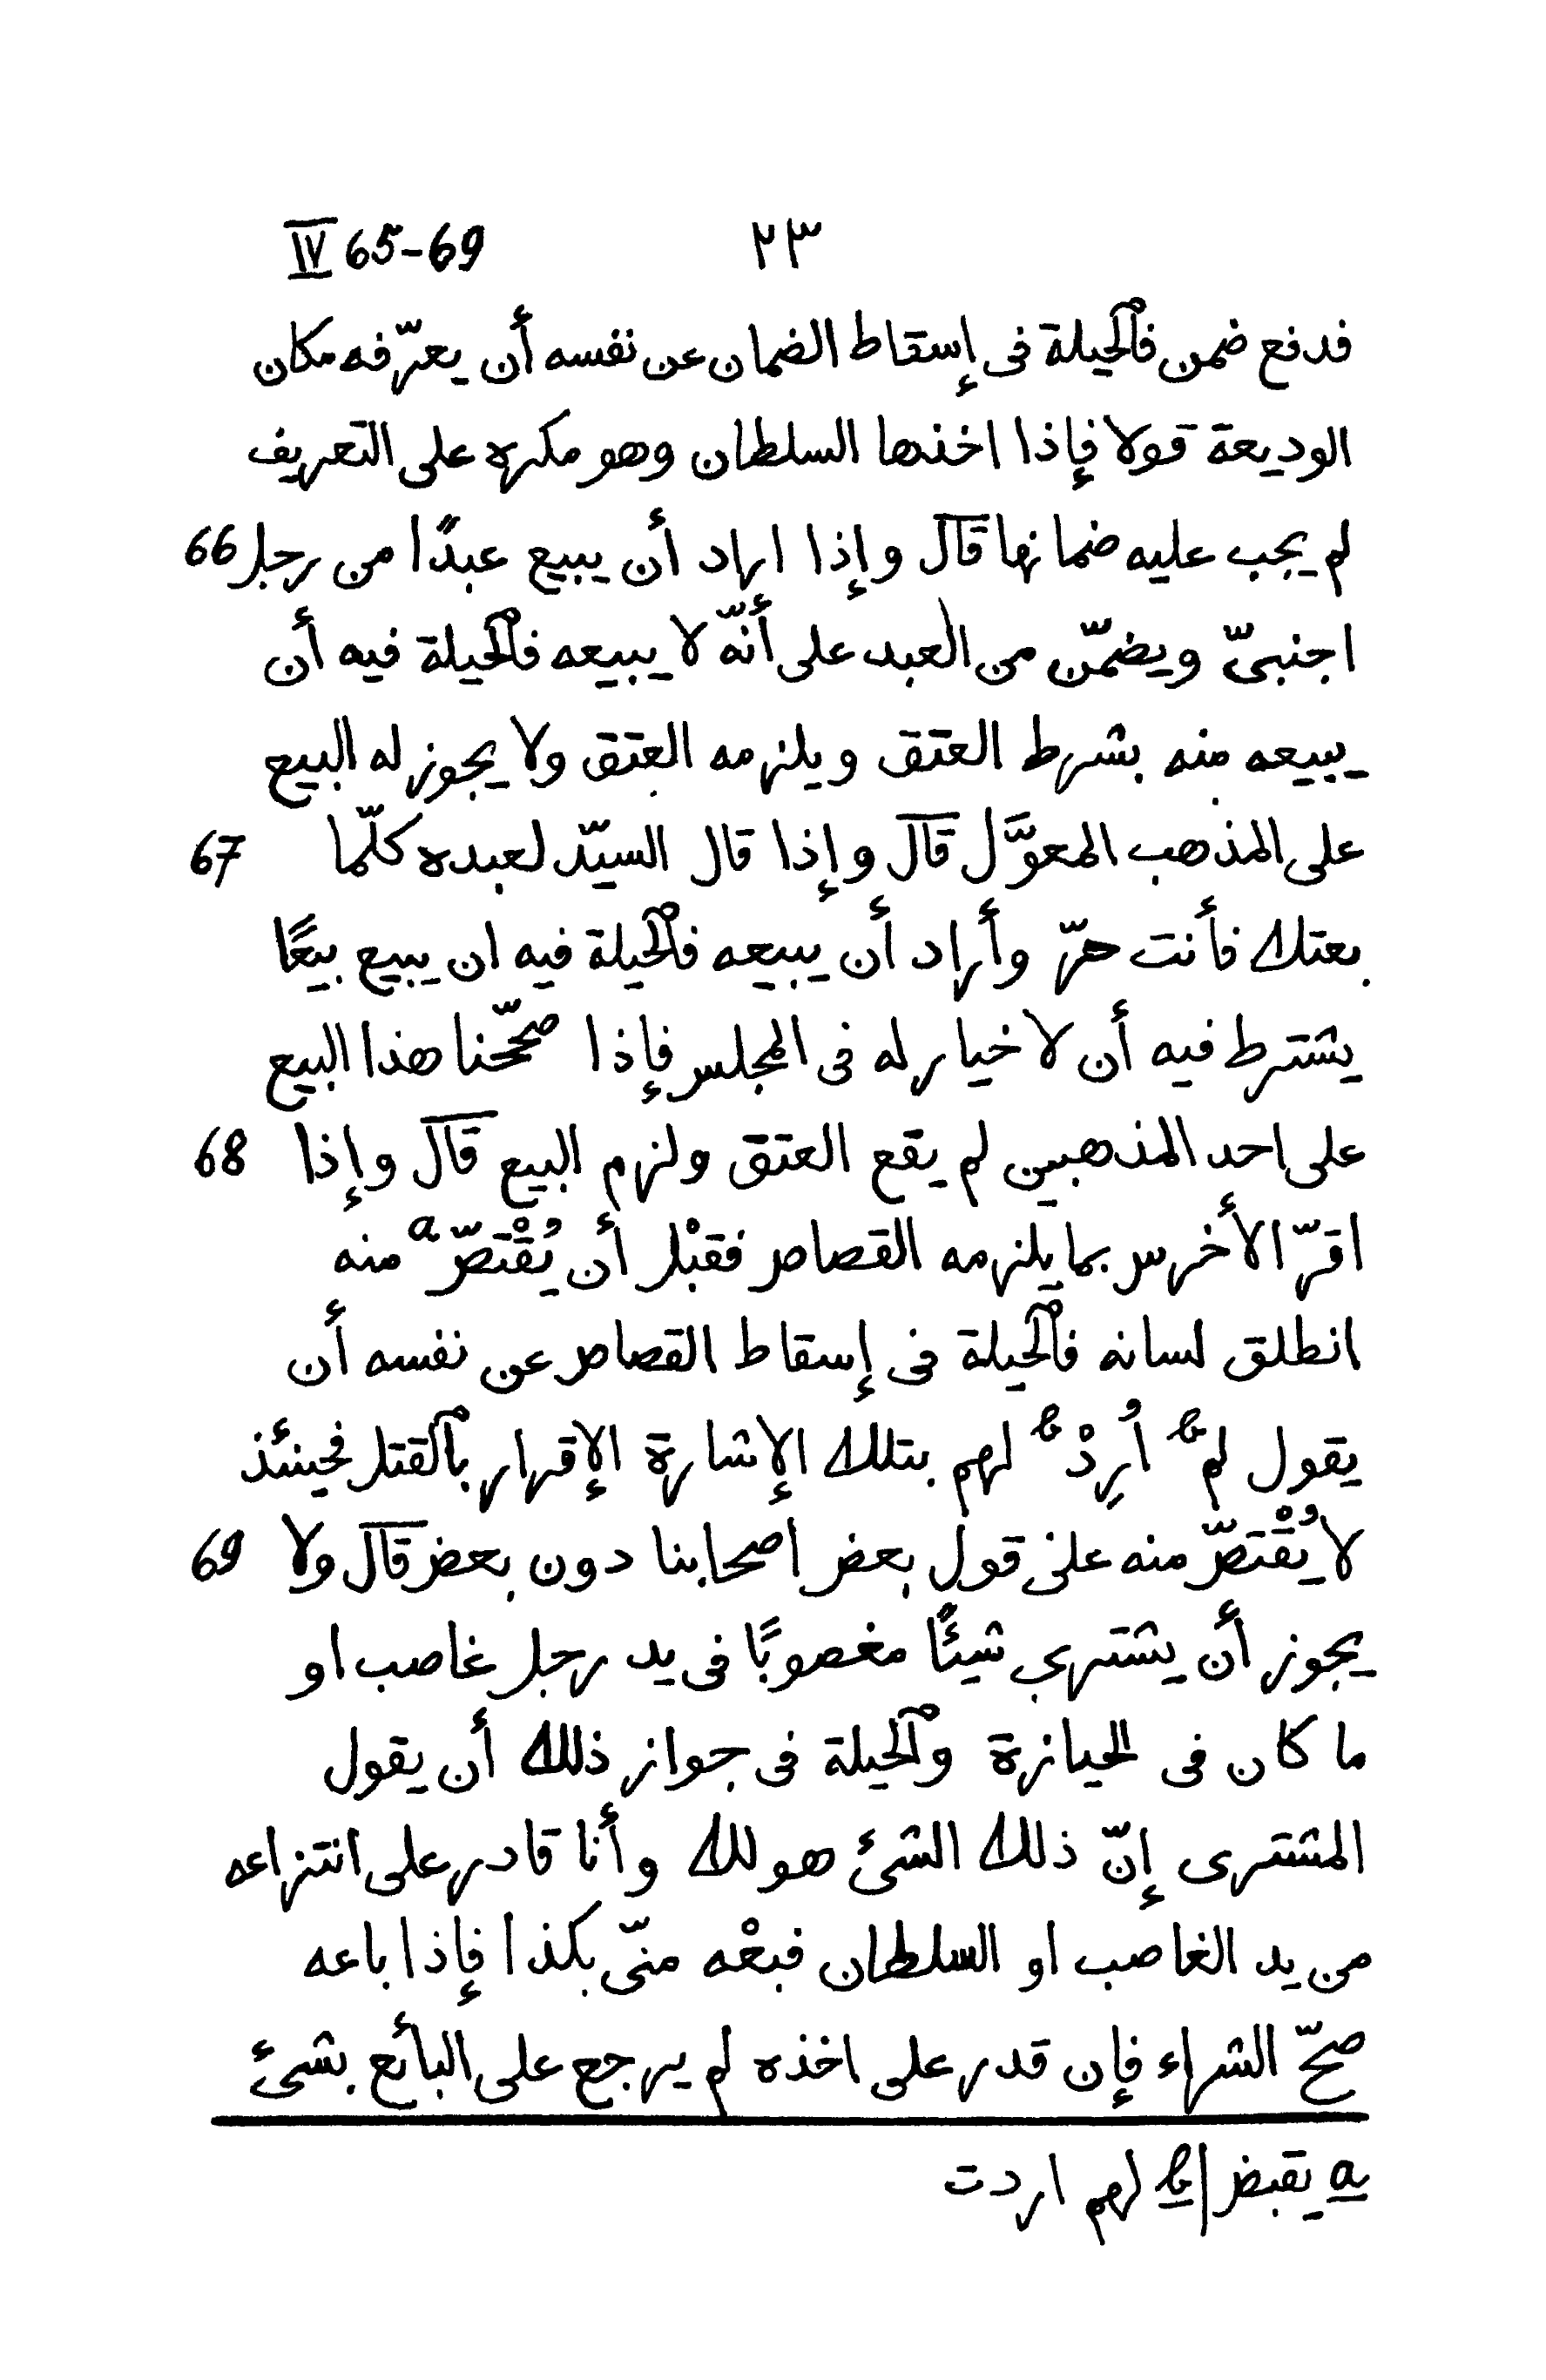 IV 65-69 ٢٣
فدفع ضمن فٱلحيلة فى إسقاط الضمان عن نفسه أن يعرّفه مكان
الوديعة قولا فإذا اخذها السلطان وهو مكره على التعريف
لم يجب عليه ضمانها قال وإذا اراد أن يبيع عبدًا من رجل 66
اجنبىّ ويضمّن من العبد على أنّه لا يبيعه فٱلحيلة فيه أن
يبيعه منه بشرط العتق ويلزمه العتق ولا يجوز له البيع
على المذهب المعوَّل قال وإذا قال السيّد لعبده كلّما 67
بعتك فأنت حرّ وأراد أن يبيعه فٱلحيلة فيه ان يبيع بيعًا
يشترط فيه أن لا خيار له فى المجلس فإذا صحّحنا هذا البيع
على احد المذهبين لم يقع العتق ولزم البيع قال وإذا 68
اقرّ الأخرس بما يلزمه القصاص فقبْل أن يُقْتصّ a منه
انطلق لسانه فٱلحيلة فى إسقاط القصاص عن نفسه أن
يقول لم b اُرِدْ b لهم بتلك الإشارة الإقرار بٱلقتل فحينئذ
لا يُقْتصّ منه على قول بعض اصحابنا دون بعض قال ولا 69
يجوز أن يشترى شيئًا مغصوبًا فى يد رجل غاصب او
ما كان فى الحيازة وٱلحيلة فى جواز ذلك أن يقول
المشترى إنّ ذلك الشئ هو لك وأنا قادر على انتزاعه
من يد الغاصب او السلطان فبعْه منّى بكذا فإذا باعه
صحّ الشراء فإن قدر على اخذه لم يرجع على البأئع بشئ
a يقبض | b لهم اردت